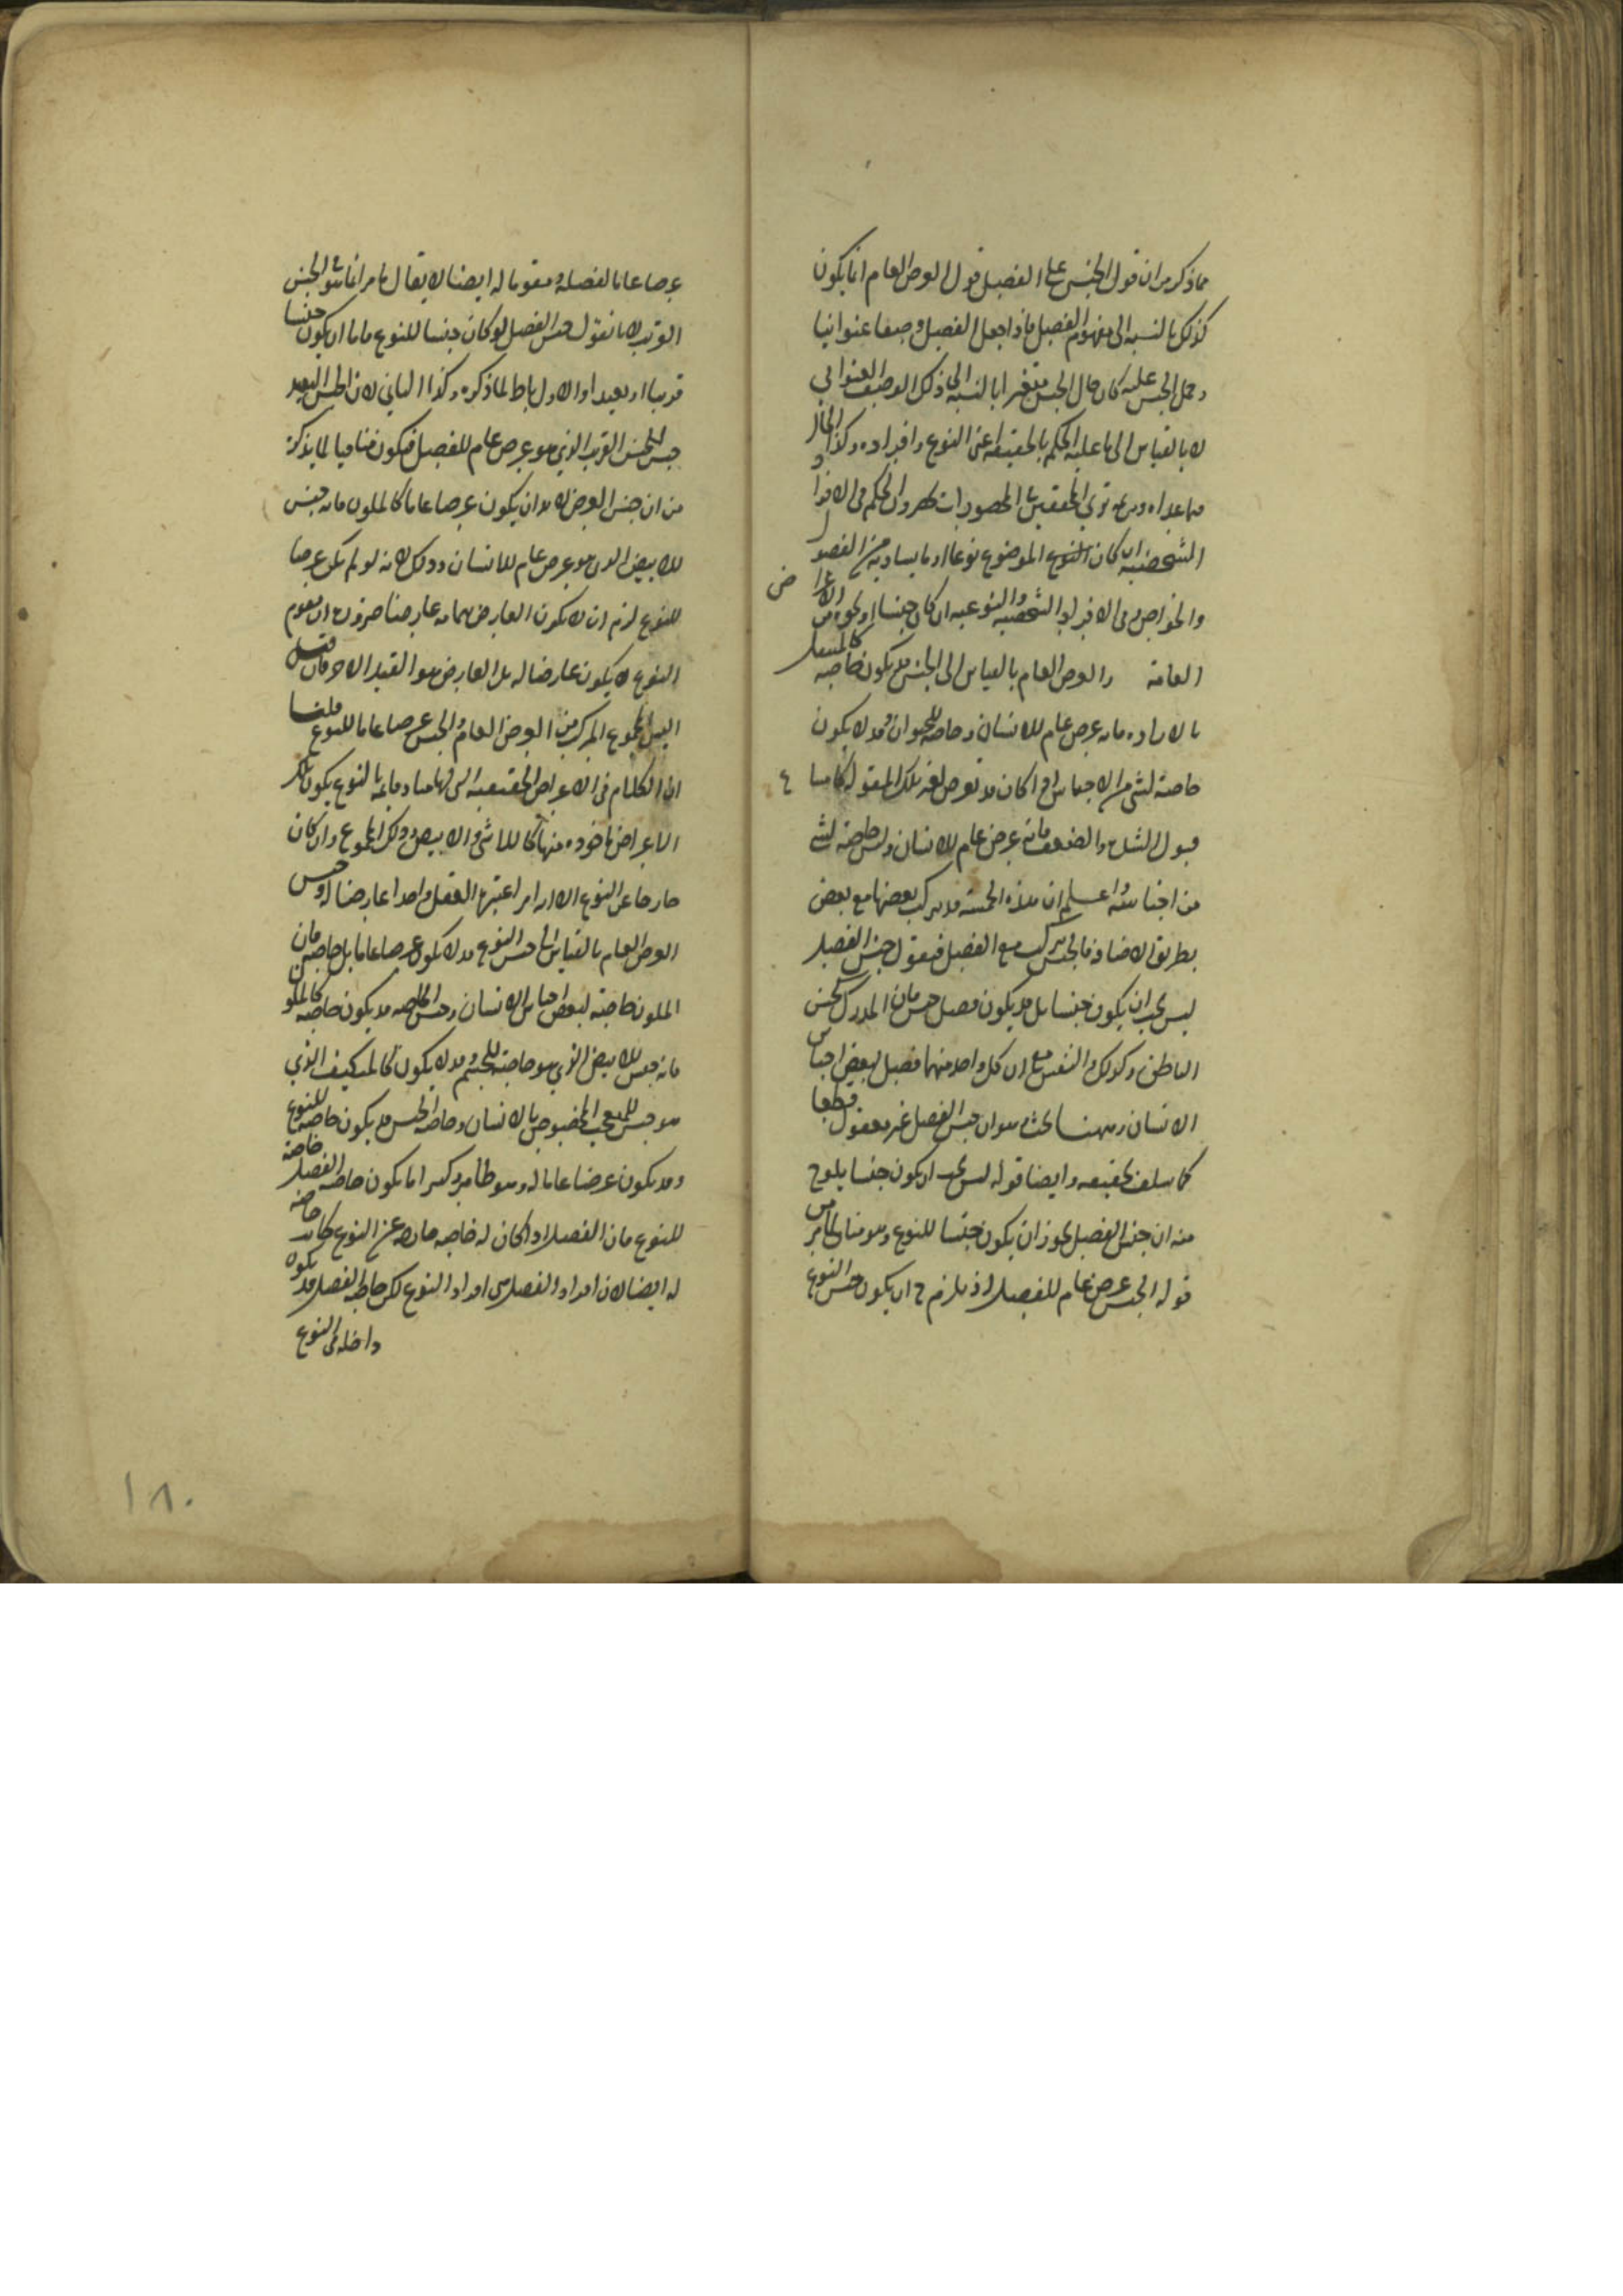 مما ذكر من ان قول الجنس على الفصل قول العرض العام انما يكون
كذلك بالنسبة الى مفهوم الفصل فاذا جعل الفصل وصفا عنوانيا
وحمل الجنس عليه كان حال الجنس متغيرا بالنسبة الى ذلك الوصف العنواني
لا بالقياس الى ما عليه الحكم بالحقيقة اعنى النوع وافراده وكذا الحال
فيما عداه ومن ثم ترى المحققين فى المحصورات الحكم فى الافراد
الشخصية ان كان الموضوع نوعا او ما يساويه من الفصول
والخواص وفى الافراد الشخصية والنوعية ان كان جنسا او نحوه من الاعراض
العامة والعرض العام بالقياس الى الجنس قد يكون خاصة كالمنتقل
بالارادة فانه عرض عام للانسان وخاصة للحيوان وقد لا يكون
خاصة لشئ من الاجناس اذا كان قد تعرض لغير تلك المقولة كما فى
قبول الشدة والضعف فانه عرض عام للانسان وليس خاصة لشئ
من اجناسه واعلم ان هذه الخمسة قد يتركب بعضها مع بعض
بطريق الاضافة فالجنس يتركب مع الفصل فيقول جنس الفصل
ليس يجب ان يكون جنسا بل قد يكون فصل جنس فان المدرك جنس
الناطق وكذلك ذو النفس مع ان كل واحد منهما فصل لبعض اجناس
الانسان وههنا بحث وهو ان جنس الفصل غير معقول قطعا
كما سلف تحقيقه وايضا قوله ليس يجب ان يكون جنسا يلوح
منه ان جنس الفصل يجوز ان يكون جنسا للنوع وهو مناف لما مر من
قوله الجنس عرض عام للفصل اذ يلزم ح ان يكون جنس النوع
عرضا عاما لفصله ومقوما له ايضا لا يقال ما مر انما هو فى الجنس
القريب لانا نقول جنس الفصل لو كان جنسا للنوع فاما ان يكون جنسا
قريبا او بعيدا والاول باطل لما ذكره وكذا الثاني لان الجنس البعيد
جنس الجنس القريب الذي هو عرض عام للفصل فيكون منافيا لما يذكره
من ان جنس العرض لا بد ان يكون عرضا عاما كالملون فانه جنس
للابيض الذى هو عرض عام للانسان وذلك لانه لو لم يكن عرضا
للنوع لزم ان لا يكون العارض بتمامه عارضا ضرورة ان مقوم
النوع لا يكون عارضا له بل العارض هو القيد الاخر فان قيل
اليس المجموع المركب من العرض العام والجنس عرضا عاما للنوع قلنا
ان الكلام فى الاعراض الحقيقية التى قائمة بالنوع يكون تلك
الاعراض ماخوذة منها كالماشى والابيض وذلك المجموع وان كان
خارجا عن النوع الا انه امر اعتبره العقل واحدا عارضا له وجنس
العرض العام بالقياس الى جنس النوع قد لا يكون عرضا عاما بل خاصة فان
الملون خاصة لبعض اجناس الانسان وجنس الخاصة قد يكون خاصة كالملون
فانه جنس للابيض الذي هو خاصة للجسم وقد لا يكون كالمتكيف الذي
هو جنس للتعجب المخصوص بالانسان وخاصة الجنس قد يكون خاصة للنوع
وقد يكون عرضا عاما له وهو ظاهر انما يكون خاصة الفصل خاصة
للنوع فان الفصل اذا كان له خاصة خارجة عن النوع كانت خاصة
له ايضا لان افراد الفصل هى افراد النوع لكن خاصة الفصل قد يكون
داخلة فى النوع
١٨٠